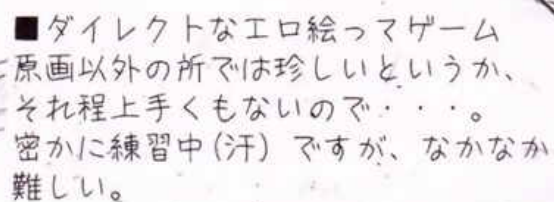 ■ダイレクトなエロ絵ってゲーム
原画以外の所では珍しいというか、
それ程上手くもないので・・・。
密かに練習中(汗)ですが、なかなか
難しい。